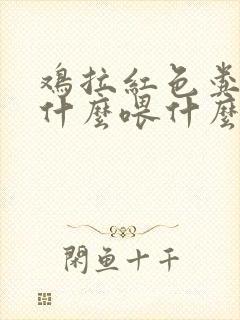 鸡拉红色粪
什麼喂什麼
闲鱼十千